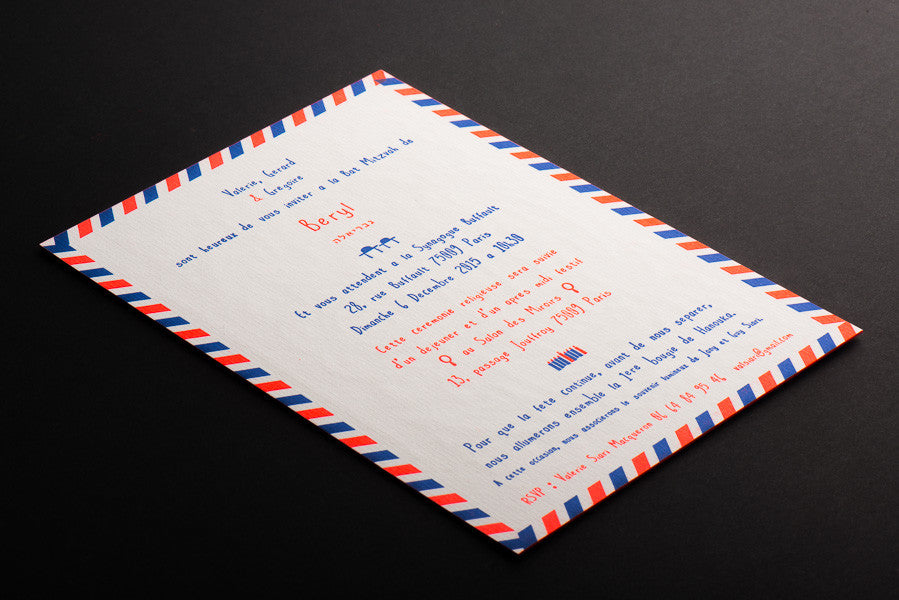 Valerie, Gerard
& Gregoire
sont heureux de vous inviter a la Bat Mitzvah de
Beryl
גבריאלה
Et vous attendent a la Synagogue Buffault
28, rue Buffault 75009 Paris
Dimanche 6 Decembre 2015 a 10h30
Cette ceremonie religieuse sera suivie
d'un dejeuner et d'un apres midi festif
au Salon des Miroirs
13, passage Jouffroy 75009 Paris
Pour que la fete continue, avant de nous separer,
nous allumerons ensemble la 1ere bougie de Hanouka.
A cette occasion, nous associerons le souvenir lumineux de Jony et Guy Siari.
RSVP : Valerie Siari Macqueron 06 64 84 95 46 valsiari@gmail.com